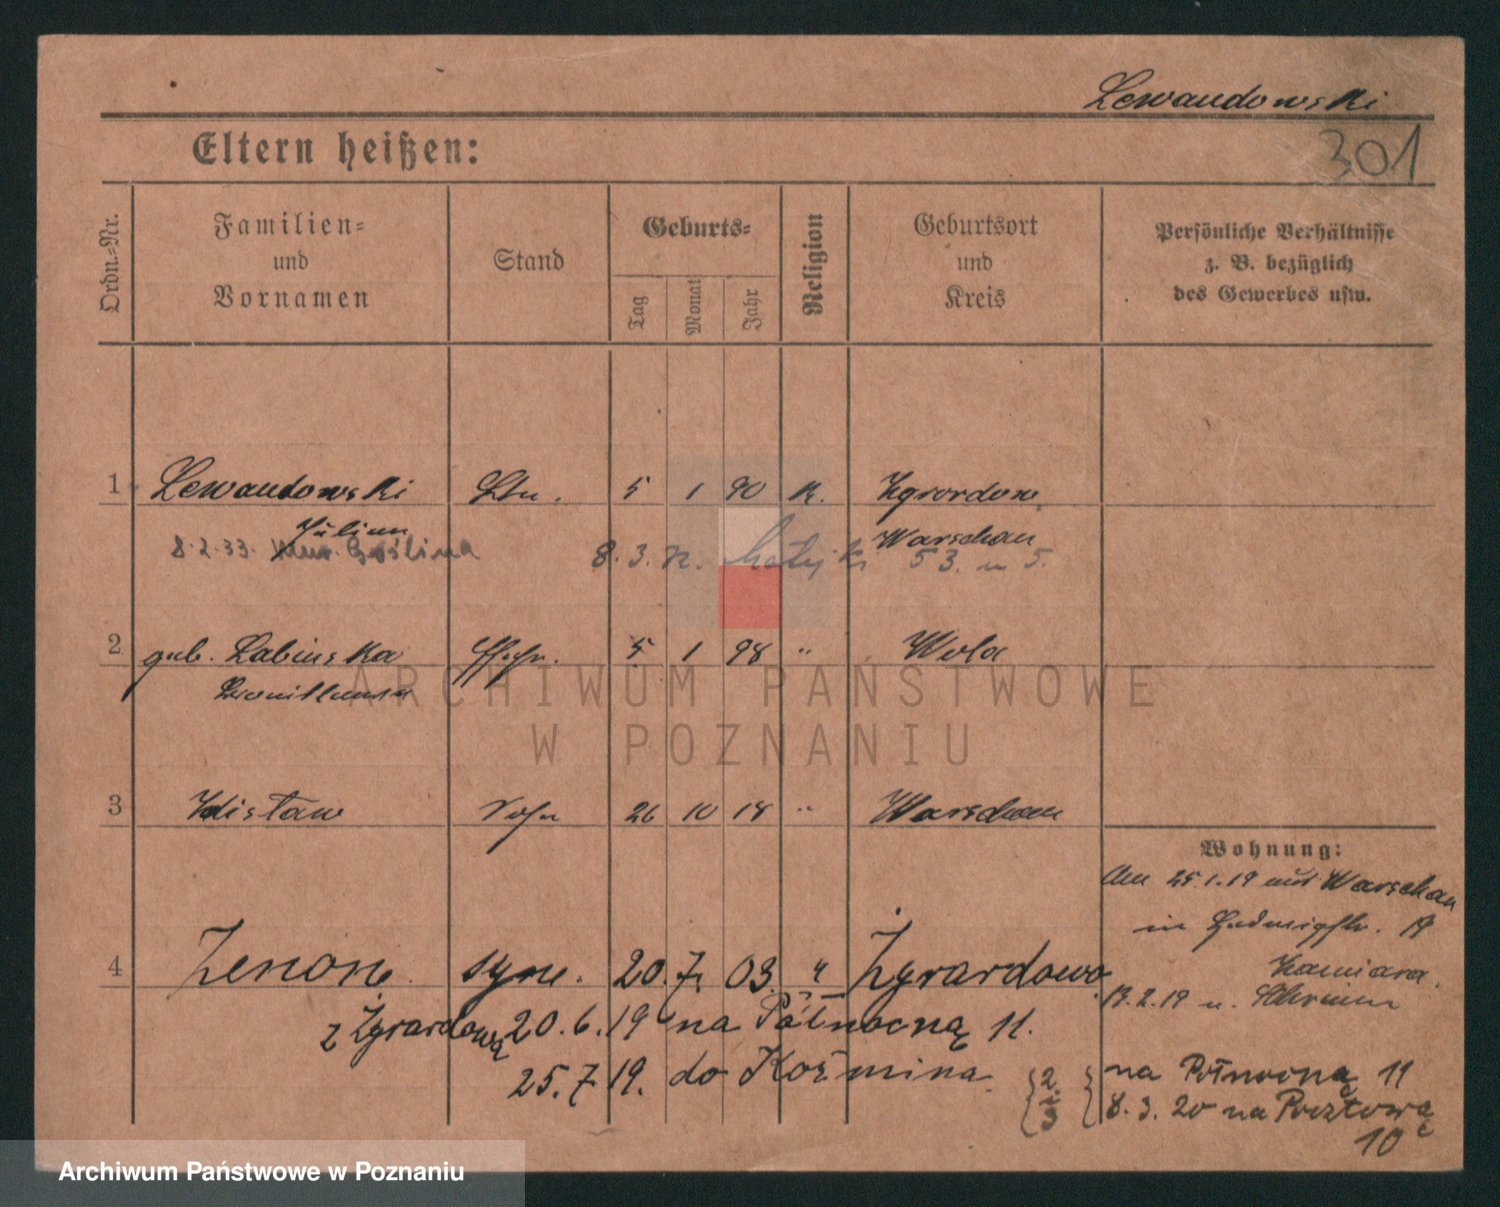 Lewandowski
301
Eltern heißen:
Ordn.-Nr.
Familien-
und
Vornamen
Stand
Geburts-
Tag
Monat
Jahr
Religion
Geburtsort
und
Kreis
Persönliche Verhältnisse
z. B. bezüglich
des Gewerbes usw.
1 Lewandowski 5 1 90 K.
Julian Warschau
8.2.33. Goślina 8.3. 53.
2 geb. Labinska 5 1 98 " Wola
3 Wisław 26 10 18 " Warschau
Wohnung:
Am 25.1.19 aus Warschau
in 19
4 Zenon syn. 20. 7. 03. " Żyrardowo
z Żyrardowa 20.6.19 na Północną 11.
25.7.19. do Koźmina
2.
i
3
na Północną 11
8.3.20 na Pocztową
10
ARCHIWUM PAŃSTWOWE
W POZNANIU
Archiwum Państwowe w Poznaniu